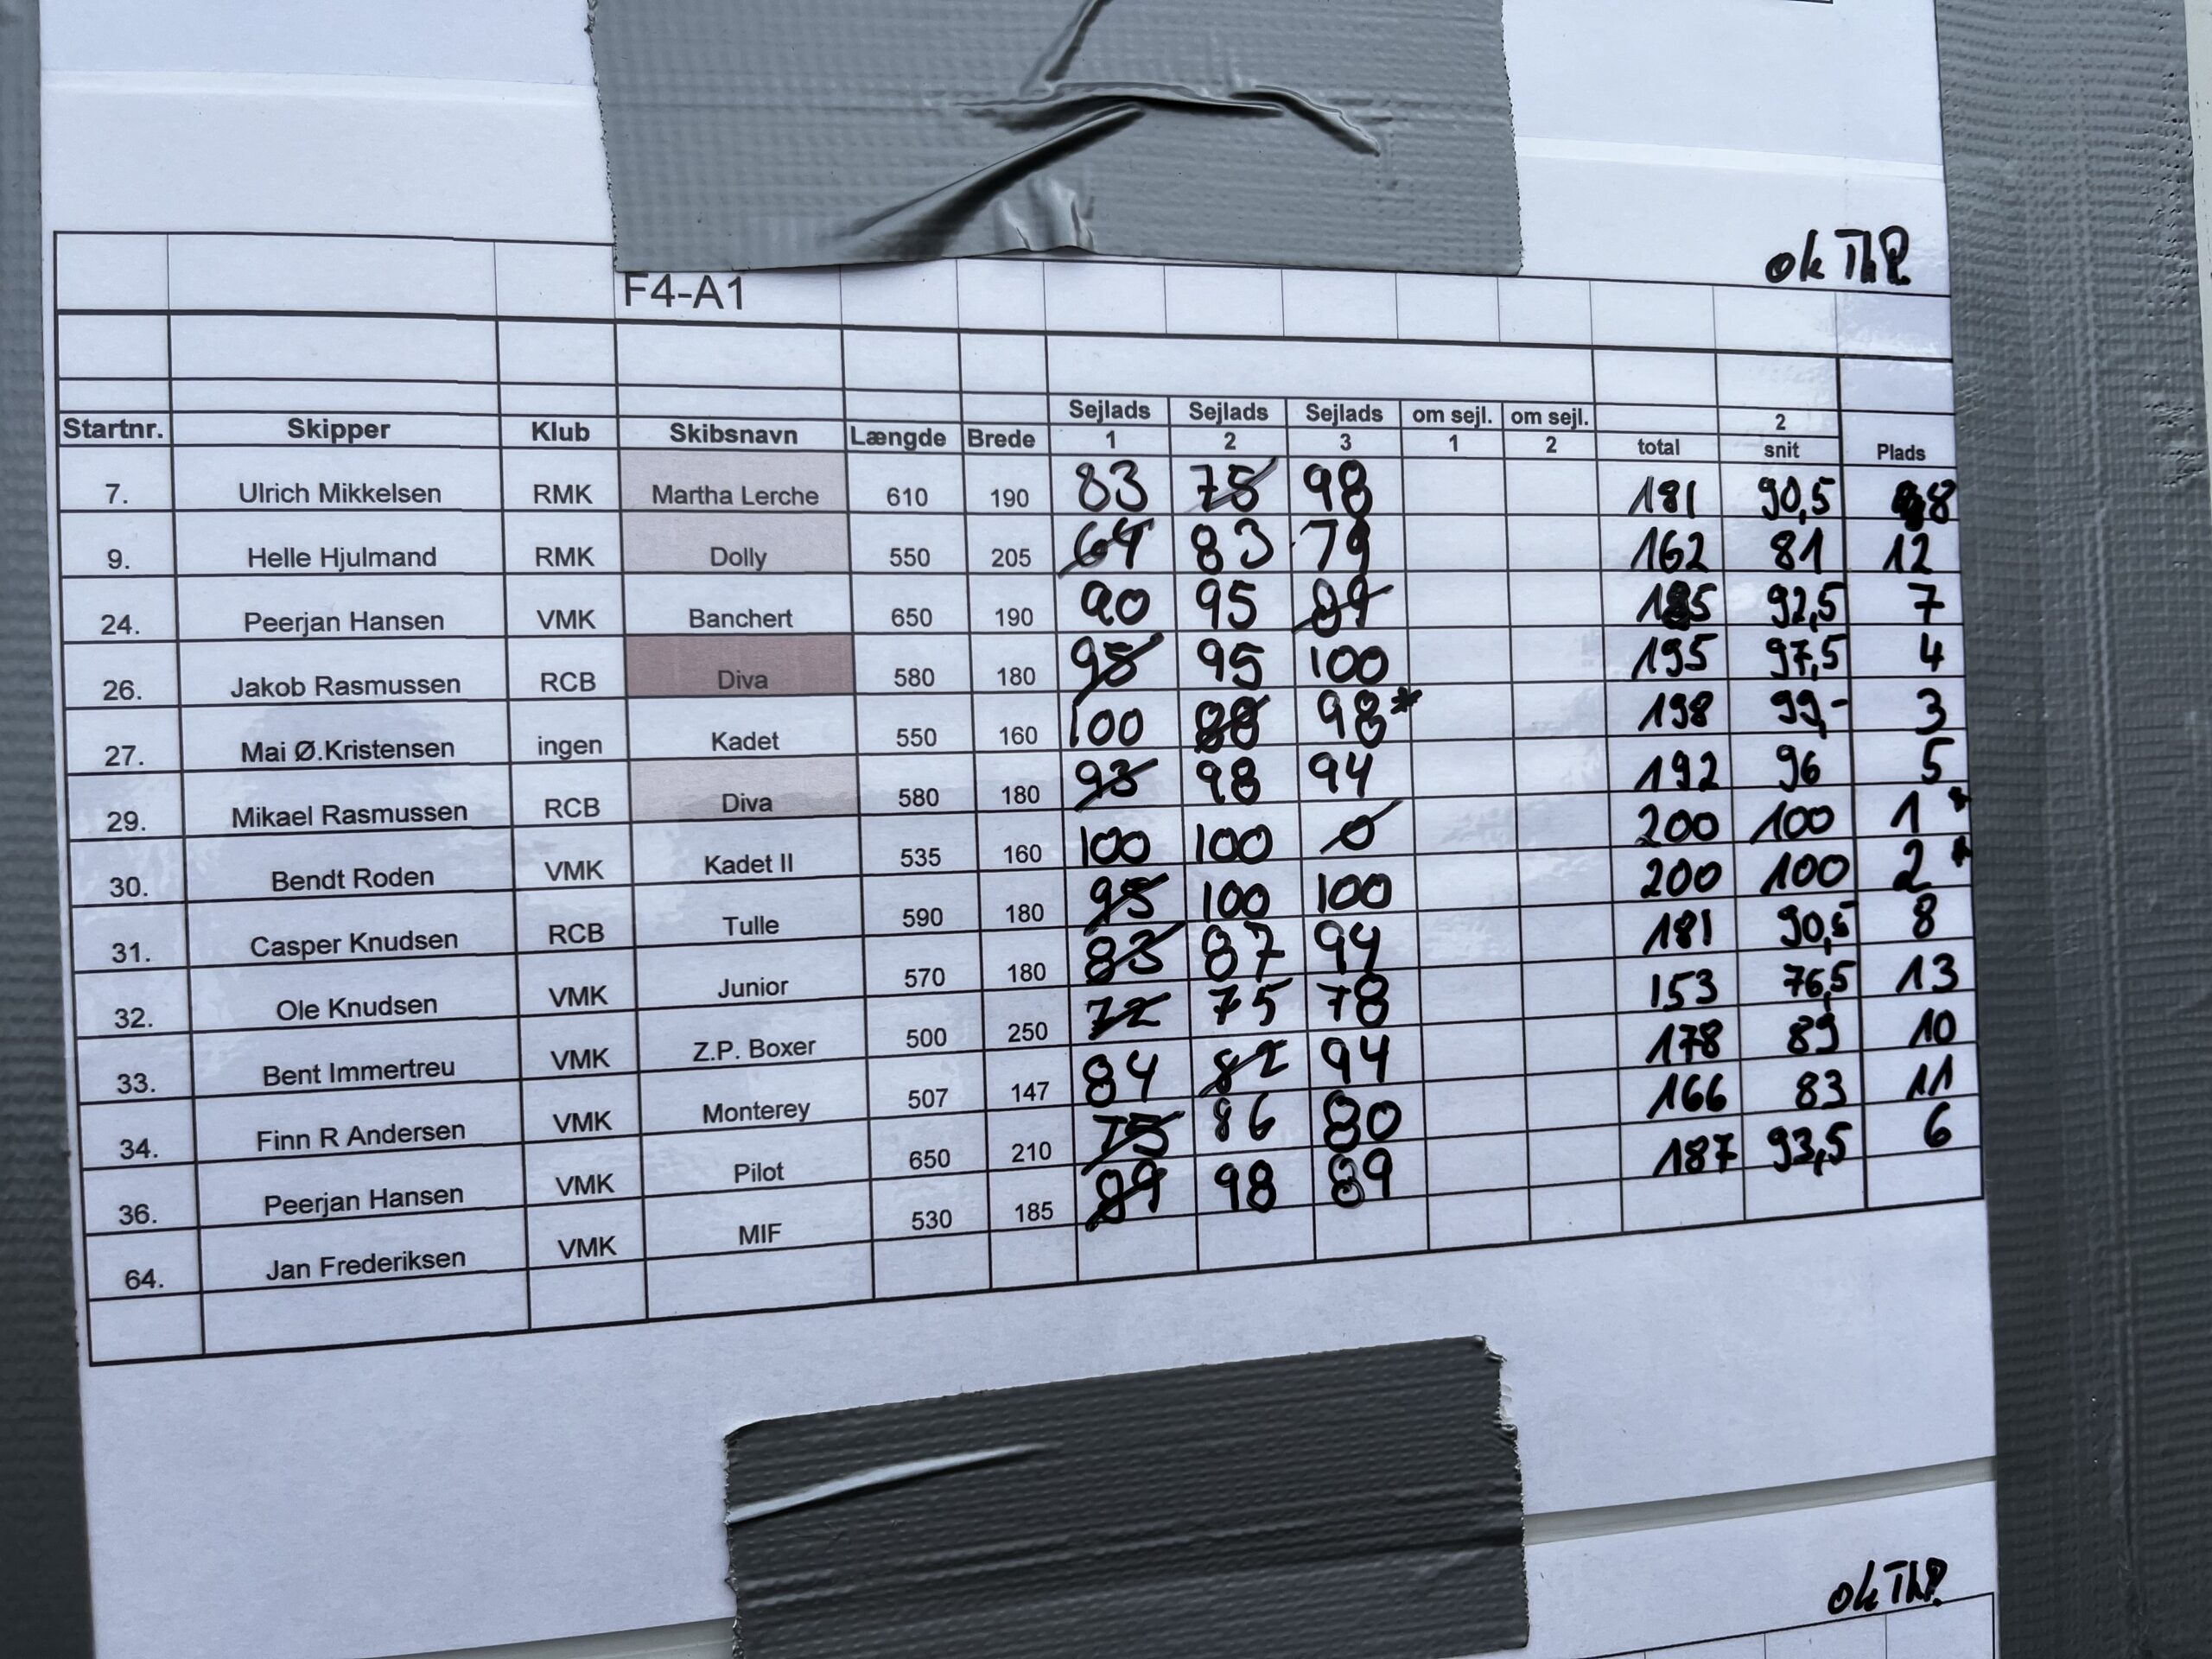 ok ThP.
F4-A1
Sejlads Sejlads Sejlads om sejl. om sejl. 2
Startnr. Skipper Klub Skibsnavn Længde Brede 1 2 3 1 2 total snit Plads
7. Ulrich Mikkelsen RMK Martha Lerche 610 190 83 75 98 181 90,5 8
9. Helle Hjulmand RMK Dolly 550 205 64 83 79 162 81 12
24. Peerjan Hansen VMK Banchert 650 190 90 95 89 185 92,5 7
26. Jakob Rasmussen RCB Diva 580 180 95 95 100 195 97,5 4
27. Mai Ø.Kristensen ingen Kadet 550 160 100 88 98* 198 99,- 3
29. Mikael Rasmussen RCB Diva 580 180 93 98 94 192 96 5
30. Bendt Roden VMK Kadet II 535 160 100 100 0 200 100 1*
31. Casper Knudsen RCB Tulle 590 180 95 100 100 200 100 2*
32. Ole Knudsen VMK Junior 570 180 83 87 94 181 90,5 8
33. Bent Immertreu VMK Z.P. Boxer 500 250 72 75 78 153 76,5 13
34. Finn R Andersen VMK Monterey 507 147 84 82 94 178 89 10
36. Peerjan Hansen VMK Pilot 650 210 75 86 80 166 83 11
64. Jan Frederiksen VMK MIF 530 185 89 98 89 187 93,5 6
ok ThP.